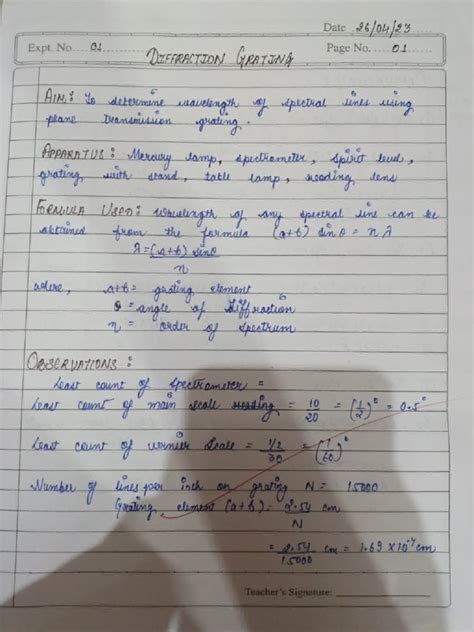 Date 26/04/23
Expt. No. 01
Page No. 01
DIFFRACTION GRATING
AIM: To determine wavelength of spectral lines using
plane transmission grating.
APPARATUS: Mercury lamp, spectrometer, spirit level,
grating, with stand, table lamp, reading lens
FORMULA USED: Wavelength of any spectral line can be
obtained from the formula (a+b) sinθ = nλ
λ = (a+b) sinθ
n
where, a+b = grating element
θ = angle of diffraction
n = order of spectrum
OBSERVATIONS:
Least count of spectrometer =
Least count of main scale reading = 10/20 = (1/2)° = 0.5°
Least count of vernier scale = 1/2/30 = (1/60)°
Number of lines per inch on grating N = 15000
Grating element (a+b) = 2.54 cm
N
= 2.54 cm = 1.69 × 10⁻⁴ cm
15000
Teacher's Signature: